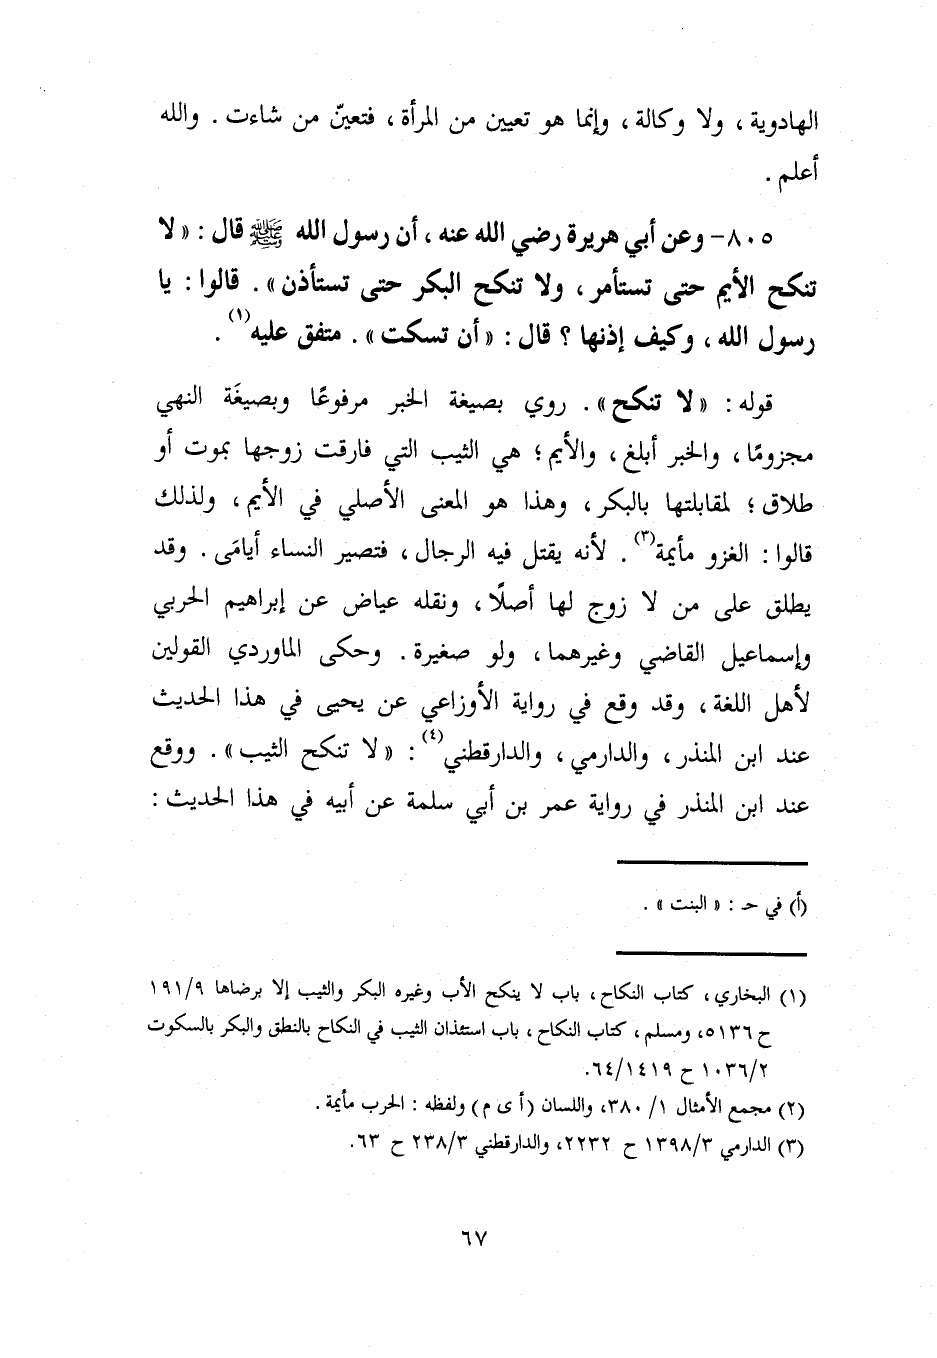 الهادوية ، ولا وكالة ، وإنما هو تعيين من المرأة ، فتعينّ من شاءت . والله
أعلم .
٨٠٥- وعن أبي هريرة رضي الله عنه ، أن رسول الله ﷺ قال : « لا
تنكح الأيم حتى تستأمر ، ولا تنكح البكر حتى تستأذن » . قالوا : يا
رسول الله ، وكيف إذنها ؟ قال : « أن تسكت » . متفق عليه(١) .
قوله : « لا تنكح » . روي بصيغة الخبر مرفوعًا وبصيغَة النهي
مجزومًا ، والخبر أبلغ ، والأيم ؛ هي الثيب التي فارقت زوجها بموت أو
طلاق ؛ لمقابلتها بالبكر ، وهذا هو المعنى الأصلي في الأيم ، ولذلك
قالوا : الغزو مأيمة(٣) . لأنه يقتل فيه الرجال ، فتصير النساء أيامَى . وقد
يطلق على من لا زوج لها أصلًا ، ونقله عياض عن إبراهيم الحربي
وإسماعيل القاضي وغيرهما ، ولو صغيرة . وحكى الماوردي القولين
لأهل اللغة ، وقد وقع في رواية الأوزاعي عن يحيى في هذا الحديث
عند ابن المنذر ، والدارمي ، والدارقطني(٤) : « لا تنكح الثيب » . ووقع
عند ابن المنذر في رواية عمر بن أبي سلمة عن أبيه في هذا الحديث :
(أ) في حـ : « البنت » .
(١) البخاري ، كتاب النكاح ، باب لا ينكح الأب وغيره البكر والثيب إلا برضاها ١٩١/٩
ح ٥١٣٦، ومسلم ، كتاب النكاح ، باب استئذان الثيب في النكاح بالنطق والبكر بالسكوت
١٠٣٦/٢ ح ٦٤/١٤١٩.
(٢) مجمع الأمثال ١/ ٣٨٠، واللسان (أ ى م) ولفظه : الحرب مأيمة .
(٣) الدارمي ١٣٩٨/٣ ح ٢٢٣٢، والدارقطني ٢٣٨/٣ ح ٦٣.
٦٧